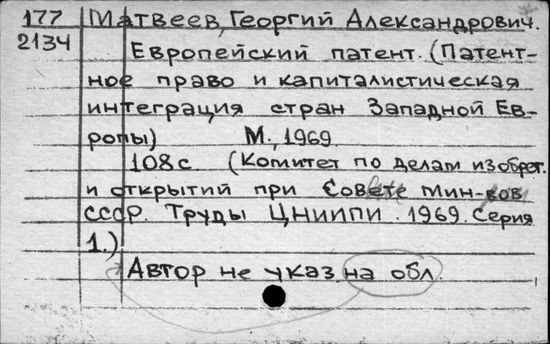 177 Матвеев, Георгий Александрович.
2134
Европейский патент. (Патент-
ное право и капиталистическая
интеграция стран Западной Ев-
ропы) М., 1969.
108с (Комитет по делам изобрет.
и открытий при Совете мин-ров
СССР. Труды ЦНИИПИ. 1969. Серия
1.)
Автор не указ. на обл.